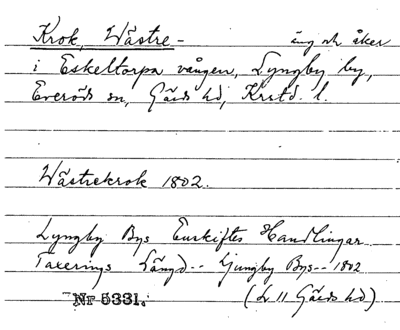 Krok, Wästre - äng och åker
i Eskeltorpa vången, Lyngby by,
Everöds sn, Gärds hd, Krstd. l.
Wästrekrok 1802.
Lyngby Bys Enskiftes Handlingar
Taxerings Längd -- Ljungby Bys -- 1802
Nr 5331. (L 11 Gärds hd)